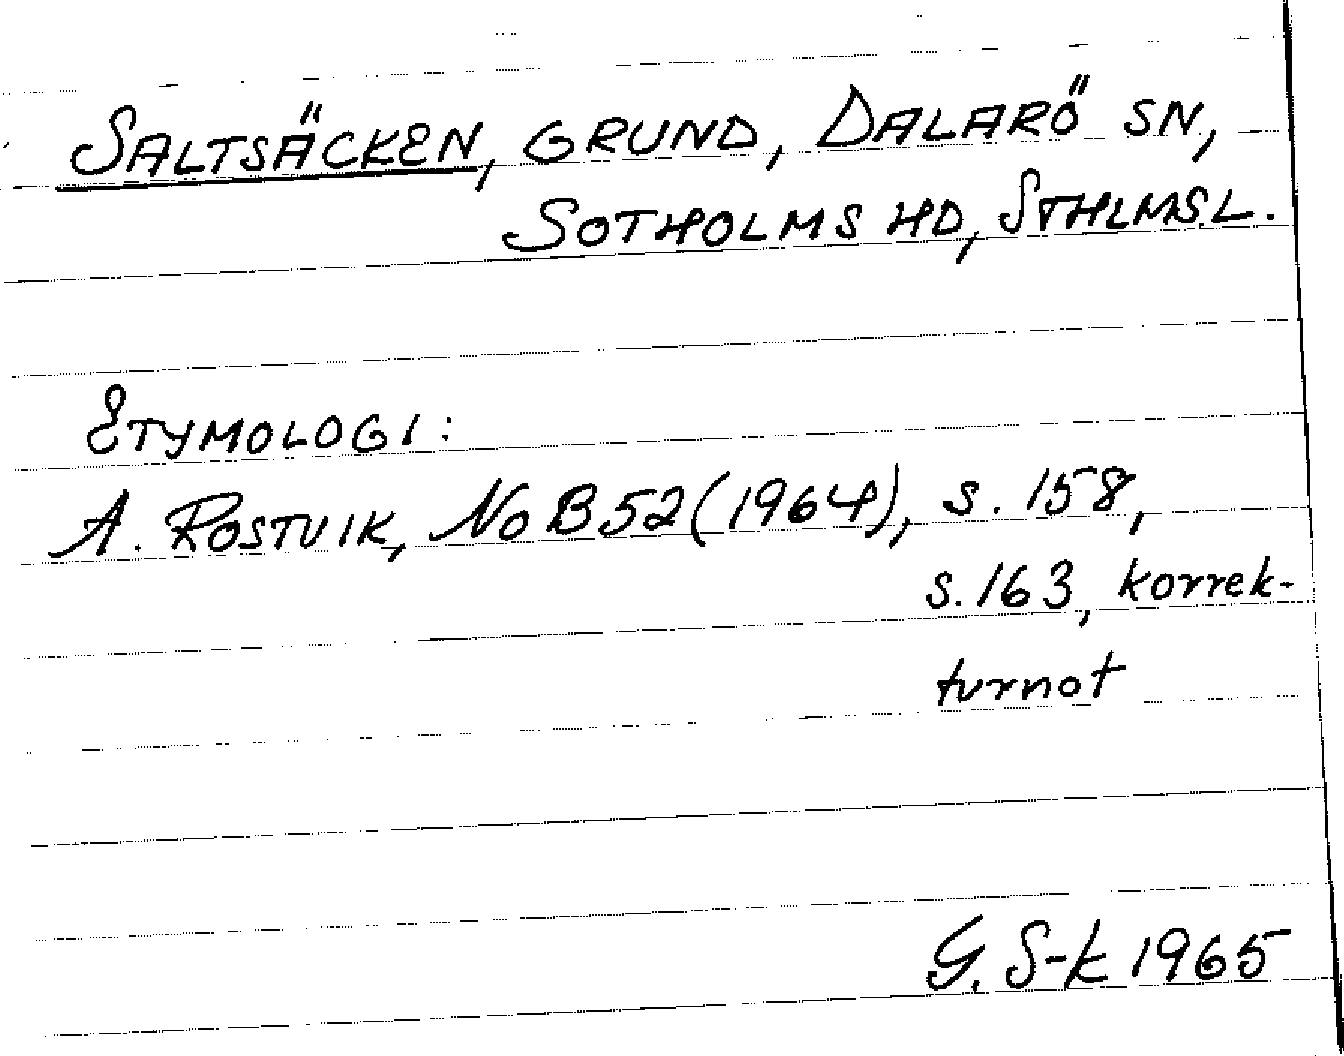 SALTSÄCKEN, GRUND, DALARÖ SN,
SOTHOLMS HD, STHLMS L.
ETYMOLOGI:
A. ROSTVIK, NoB 52 (1964), s. 158,
s. 163, korrek-
turnot
G. S-k 1965